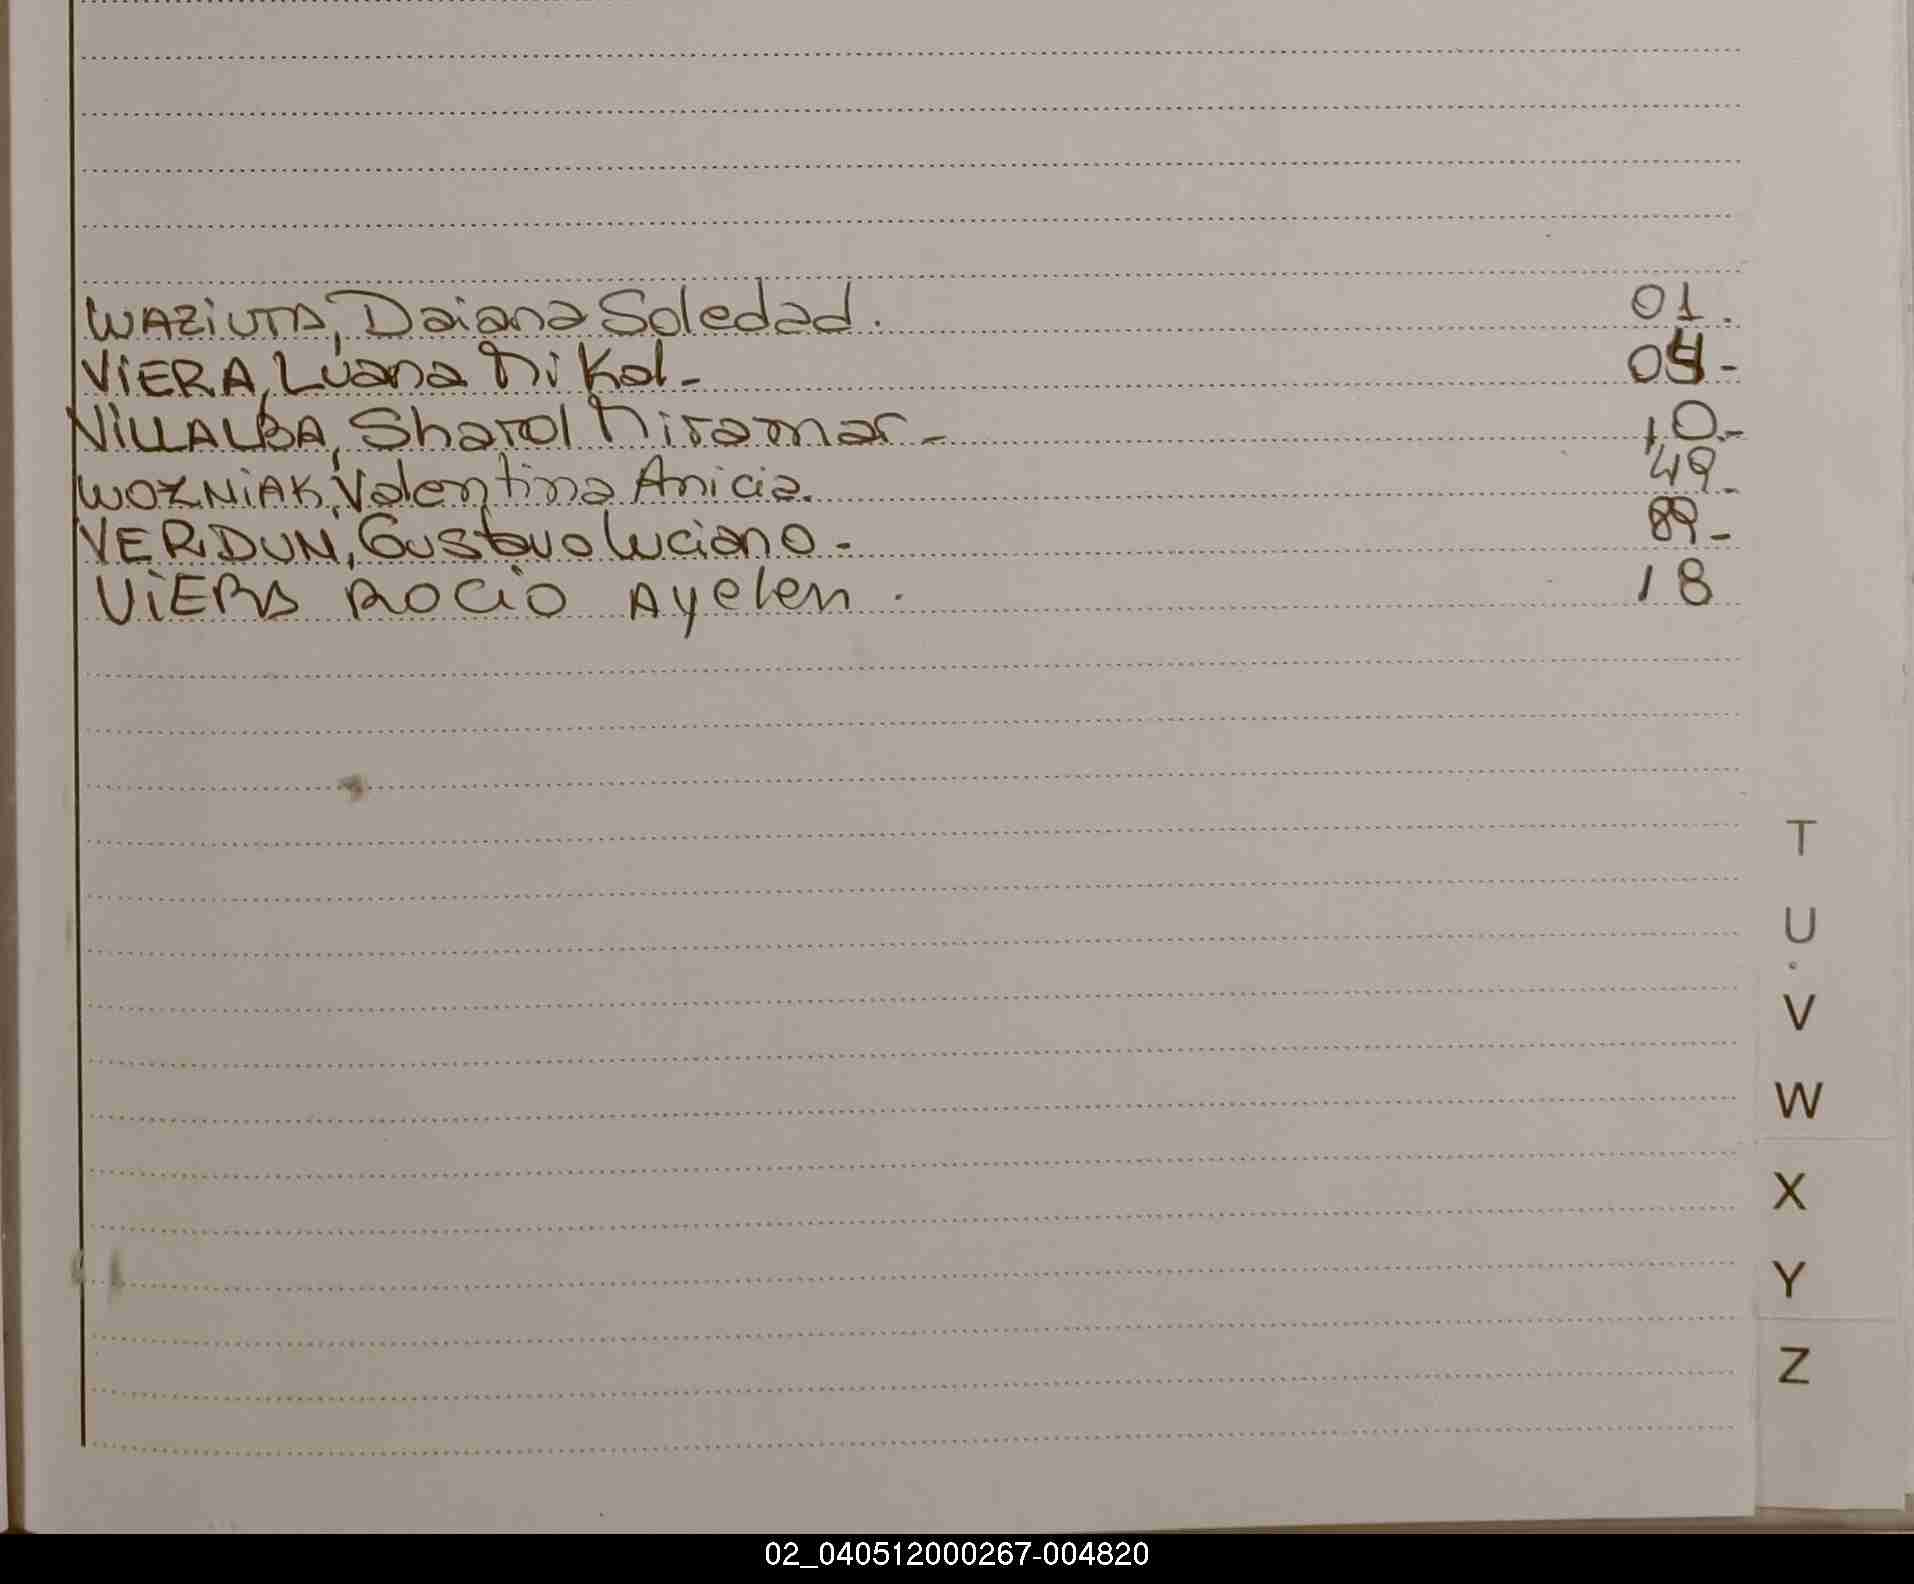 WAZIUTA, Daiana Soledad. 01.
VIERA, Luana Nikol- 04-
VILLALBA, Sharol Niramar- 10-
WOZNIAK, Valentina Anicia. 49-
VERDUN, Gustavo Luciano- 89-
VIERA ROCIO Ayelen. 18
T
U
V
W
X
Y
Z
02_040512000267-004820